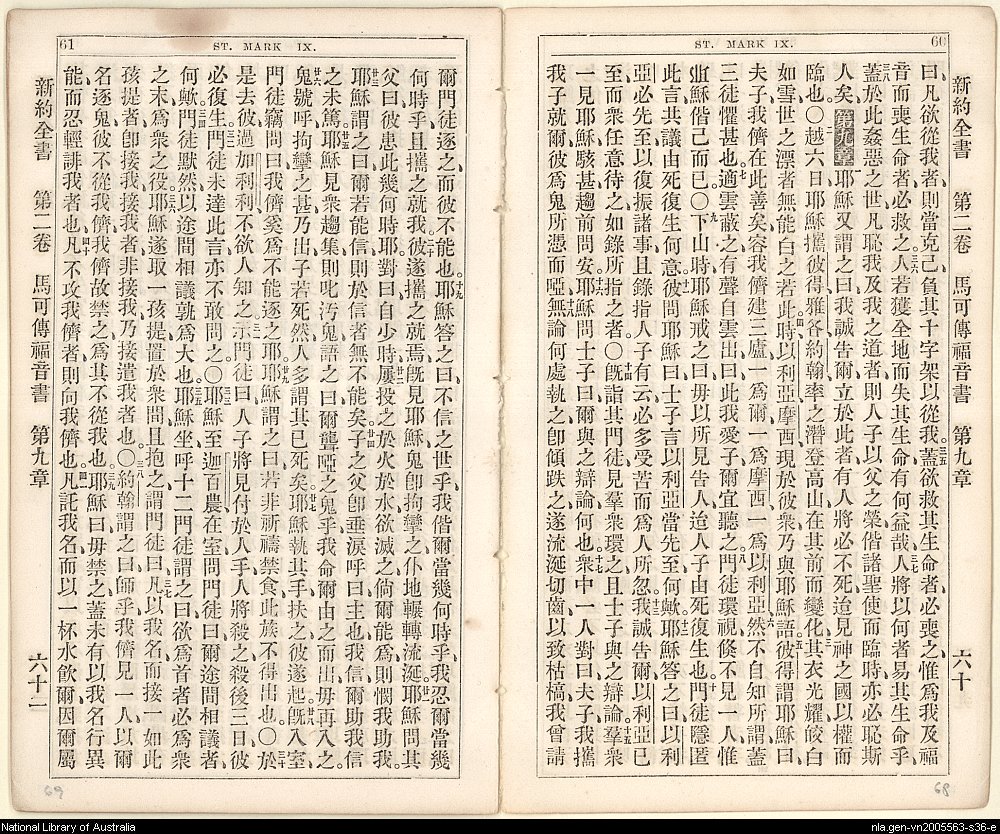 60
ST. MARK IX.
新約全書 第二卷 馬可傳福音書 第九章 六十
曰、凡欲從我者、則當克己負其十字架以從我。三五蓋欲救其生命者、必喪之、惟爲我及福
音而喪生命者、必救之、三六人若獲全地而失其生命、有何益哉、三七人將以何者易其生命乎、
三八蓋於此姦惡之世、凡恥我及我之道者、則人子以父之榮、偕諸聖使而臨時、亦必恥斯
人矣。第九章一耶穌又謂之曰、我誠告爾、立於此者、有人將必不死、迨見神之國以權而
臨也。〇二越六日、耶穌攜彼得雅各約翰、率之潛登高山、在其前而變化、三其衣光耀皎白
如雪、世之漂者、無能白之若此、四時以利亞摩西、現於彼衆、乃與耶穌語、五彼得謂耶穌曰、
夫子、我儕在此善矣、容我儕建三廬、一爲爾、一爲摩西、一爲以利亞、六然不自知所謂、蓋
三徒懼甚也。七適雲蔽之、有聲自雲出曰、此我愛子、爾宜聽之、八門徒環視、倏不見一人、惟
耶穌偕己而已。〇九下山時、耶穌戒之曰、毋以所見告人、迨人子由死復生也。十門徒隱匿
此言、其議由死復生何意、十一彼問耶穌曰、士子言以利亞當先至、何歟、十二耶穌答之曰、以利
亞必先至、以復振諸事、且錄指人子有云、必多受苦、而爲人所忽、十三我誠告爾、以利亞已
至、而衆任意待之、如錄所指之者。〇十四旣詣其門徒、見羣衆環之、且士子與之辯論、十五羣衆
一見耶穌、駭甚、趨前問安、十六耶穌問士子曰、爾與之辯論何也、十七衆中一人對曰、夫子、我攜
我子就爾、彼爲鬼所憑而啞、十八無論何處執之、卽傾跌之、遂流涎切齒、以致枯槁、我曾請
68
61
ST. MARK IX.
爾門徒逐之、而彼不能也。十九耶穌答之曰、不信之世乎、我偕爾當幾何時乎、我忍爾當幾
何時乎、且攜之就我、二十彼遂攜之就焉、旣見耶穌、鬼卽拘攣之、仆地輾轉流涎、廿一耶穌問其
父曰、彼患此幾何時耶、對曰、自少時、廿二屢投之於火於水、欲滅之、倘爾能爲、則憫我助我。
廿三耶穌謂之曰、爾若能信、則於信者無不能矣、廿四子之父卽垂淚呼曰、主也、我信、爾助我信
之未篤、廿五耶穌見衆趨集、則叱汚鬼語之曰、聾啞之鬼乎、我命爾由之而出、毋再入之。
廿六鬼號呼拘攣之甚、乃出、子若死然、人多謂其已死矣、廿七耶穌執其手扶之、彼遂起、廿八旣入室、
門徒竊問曰、我儕奚爲不能逐之耶、廿九耶穌謂之曰、若非祈禱禁食、此族不得出也。〇三十於
是去彼、過加利利、不欲人知之、三一示門徒曰、人子將見付於人手、人將殺之、殺後三日、彼
必復生、三二門徒未達此言、亦不敢問之。〇三三耶穌至迦百農、在室問門徒曰、爾途間相議者
何歟、三四門徒默然、以途間相議孰爲大也。三五耶穌坐、呼十二門徒謂之曰、欲爲首者、必爲衆
之末、爲衆之役、三六耶穌遂取一孩提、置於衆間、且抱之、謂門徒曰、三七凡以我名而接一如此
孩提者、卽接我、接我者、非接我、乃接遣我者也。〇三八約翰謂之曰、師乎、我儕見一人、以爾
名逐鬼、彼不從我儕、我儕故禁之、爲其不從我也。三九耶穌曰、毋禁之、蓋未有以我名行異
能、而忍輕誹我者也。四十凡不攻我儕者、則向我儕也。四一凡託我名、而以一杯水飲爾、因爾屬
新約全書 第二卷 馬可傳福音書 第九章 六十一
69
National Library of Australia
nla.gen-vn2005563-s36-e